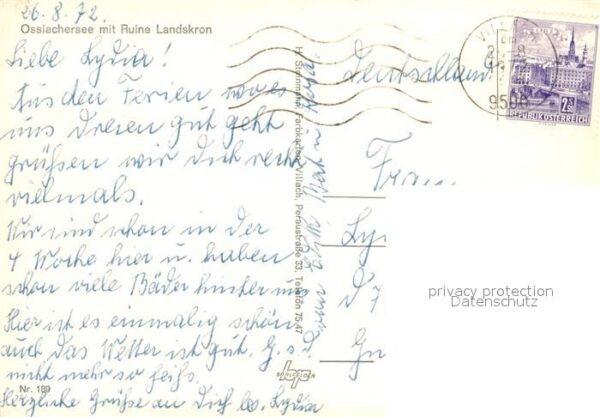 26.8.72.
Ossiachersee mit Ruine Landskron
Liebe Lydia!
Aus den Ferien wo es
uns dreien gut geht
grüßen wir Dich recht
vielmals.
Wir sind schon in der
4 Woche hier u. haben
schon viele Bäder hinter uns
Hier ist es einmalig schön
auch das Wetter ist gut. G.s.d.
nicht mehr so heiß.
Herzliche Grüße an Dich
Lydia
Nr. 189
H. Steinmann, Farbkarten, Villach, Peraustraße 33, Telefon 75 47
Deutschland
Frau
Ly
D 7
9500
2.50
REPUBLIK ÖSTERREICH
privacy protection
Datenschutz